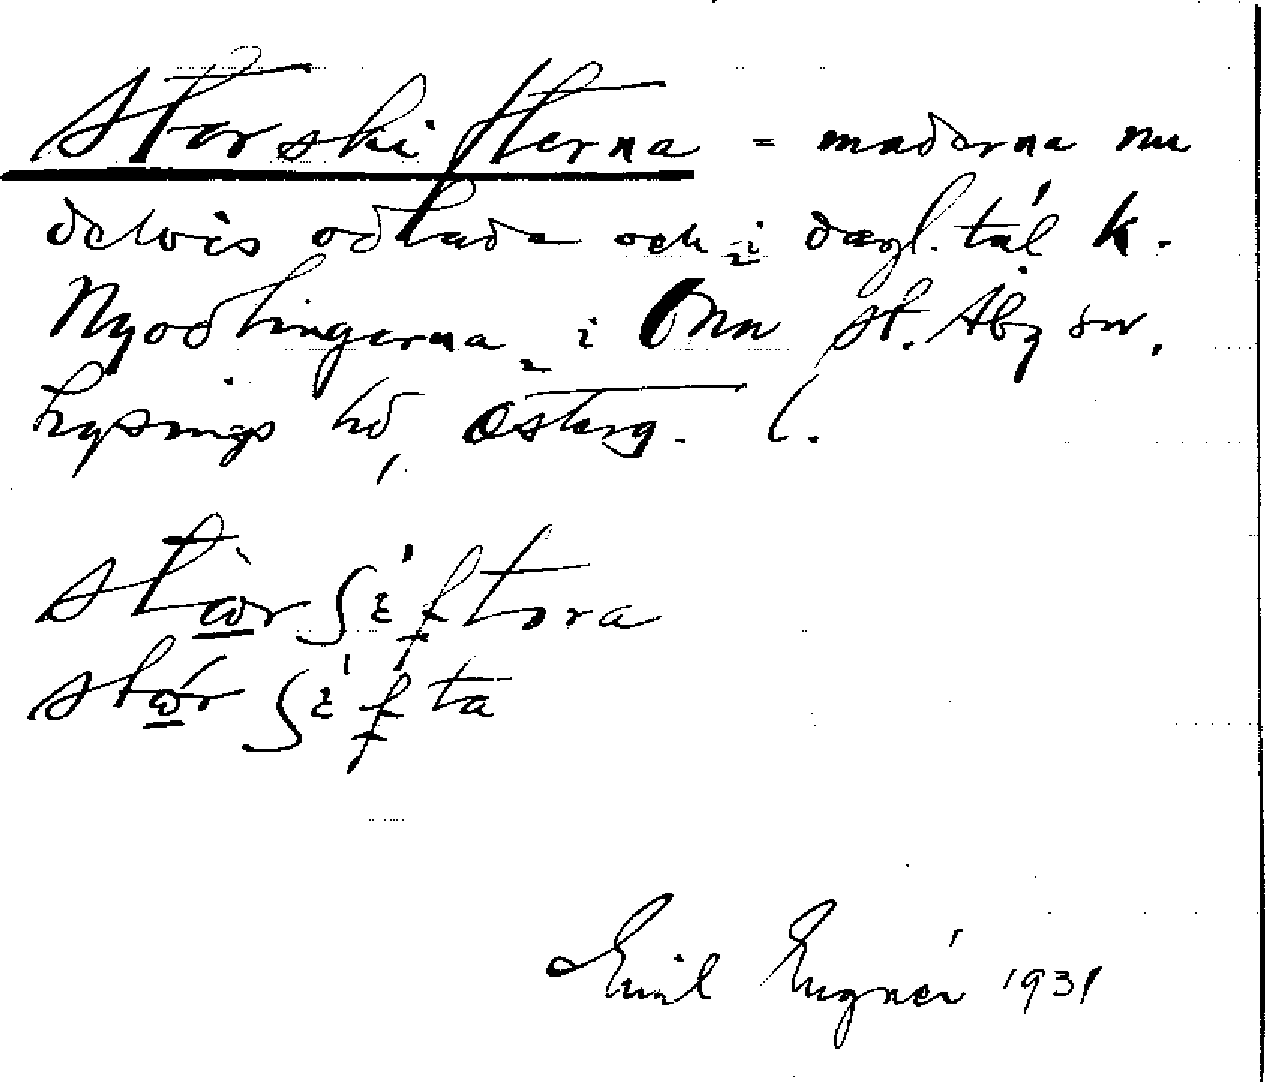 Storskifterna = maderna nu
delvis odlade och i dagl. tal k.
Nyodlingarna i Onn St. Åby sn,
Lysings hd, Österg. (.
stωr ʃɛ'ftəra
stωr ʃɛ'fta
Emil Engnér 1931